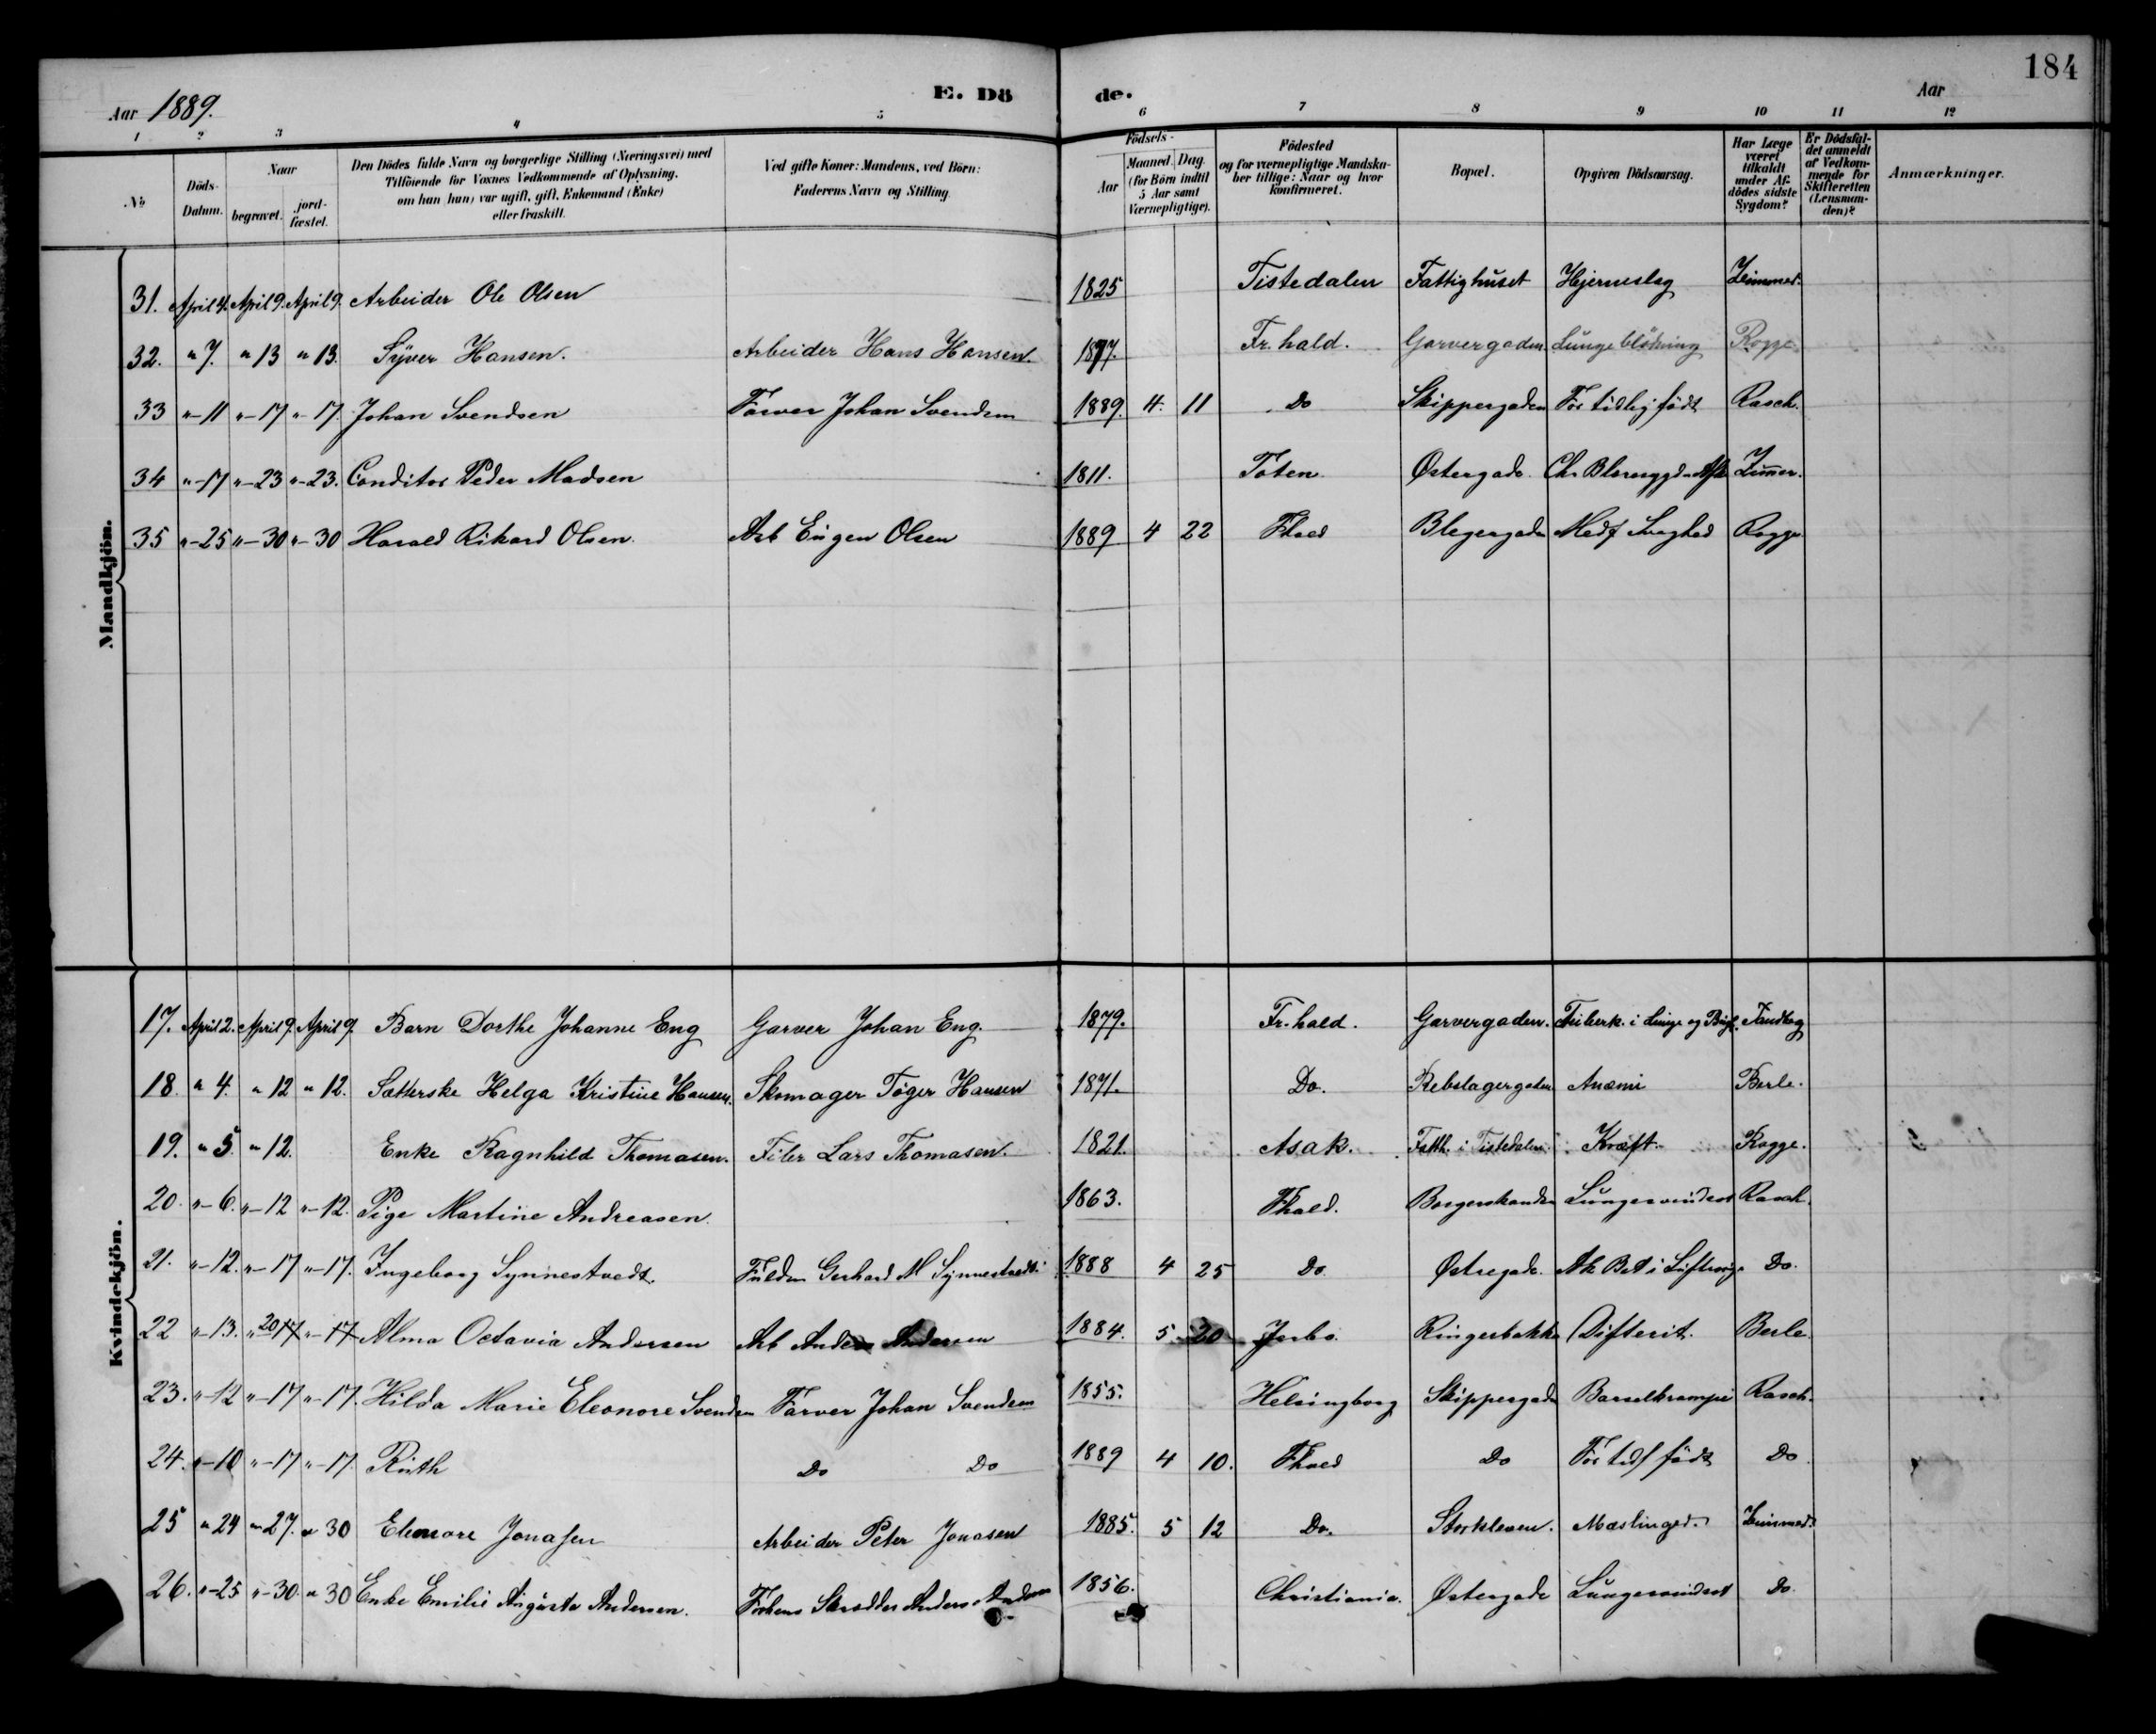 184
Aar 1889. E. Dö de. Aar
1 2 3 4 5 6 7 8 9 10 11 12
No
Döds-Datum.
Naar begravet. jord-fæstet.
Den Dödes fulde Navn og borgerlige Stilling (Næringsvei) med Tilföiende for Voxnes Vedkommende af Oplysning, om han (hun) var ugift, gift, Enkemand (Enke) eller fraskilt.
Ved gifte Koner: Mandens, ved Börn: Faderens Navn og Stilling.
Födsels- Aar Maaned. Dag. (for Börn indtil 5 Aar samt Værnepligtige).
Födested og for værnepligtige Mandska-ber tillige: Naar og hvor konfirmeret.
Bopæl.
Opgiven Dödsaarsag.
Har Læge været tilkaldt under Af-dödes sidste Sygdom?
Er Dödsfal-det anmeldt af Vedkom-mende for Skifteretten (Lensman-den)?
Anmærkninger.
Mandkjön.
31. April 4. April 9. April 9. Arbeider Ole Olsen 1825 Tistedalen Fattighuset Hjerneslag
32. " 7. " 13 " 13. Syver Hansen. Arbeider Hans Hansen 1877. Fr.hald. Garvergaden. Lungeblödning Rogge.
33 "-11 "-17 "-17. Johan Svendsen Farver Johan Svendsen 1889. 4. 11 Do Skippergaden For tidlig födt Rasch.
34 "-17 "-23 "-23. Conditor Peder Madsen 1811. Toten. Østergade. Zimmer.
35 "-25 "-30 "-30 Harald Rikard Olsen. Arb Eugen Olsen 1889 4 22 Fhald Blegergaden Medf Svaghed Rogge
Kvindekjön.
17. April 2. April 9. April 9. Barn Dorthe Johanne Eng Garver Johan Eng. 1879. Fr.hald. Garvergaden. Tuberk. i Lunge og
18. " 4. " 12 " 12. Helga Kristine Hansen. Skomager Tøger Hansen 1871. Do. Rebslagergaden Anæmi Berle.
19. " 5. " 12. Enke Ragnhild Thomasen. Filer Lars Thomasen. 1821. Asak. Fatth. i Tistedalen. Kræft. Rogge.
20. "-6. "-12 "-12. Pige Martine Andreasen. 1863. Fhald. Borgerskansen Lungesvindsot Rasch.
21. "-12. "-17 "-17. Ingeborg Synnestvedt. Gerhard M Synnestvedt 1888 4 25 Do Østregade. Do.
22 "-13. " 20 17 "-17 Alma Octavia Andersen Arb Anders Andersen 1884. 5. 20 Ringersbakke Difterit. Berle.
23. "-12 "-17 "-17. Hilda Marie Eleonore Svendsen Farver Johan Svendsen 1855. Helsingborg Skippergaden Barselkrampe Rasch.
24. "-10 "-17 "-17. Ruth Do Do 1889 4 10. Fhald Do For tidl födt Do
25 " 24 "-27. " 30 Elenore Jonasen Arbeider Peter Jonasen 1885. 5 12 Do. Storkleven. Mæslinger.
26. "-25 "-30. " 30 Enke Emilie Augusta Andersen. Skrædder Anders Andersen 1856. Christiania. Østergade Lungesvindsot Do.